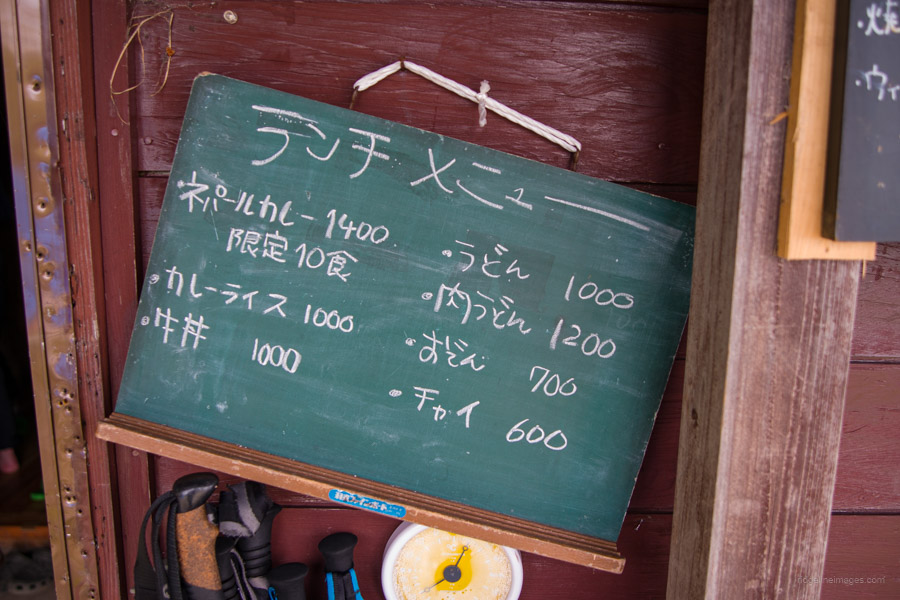 ランチメニュー
・ネパールカレー 1400
限定10食
・カレーライス 1000
・牛丼 1000
・うどん 1000
・肉うどん 1200
・おでん 700
・チャイ 600